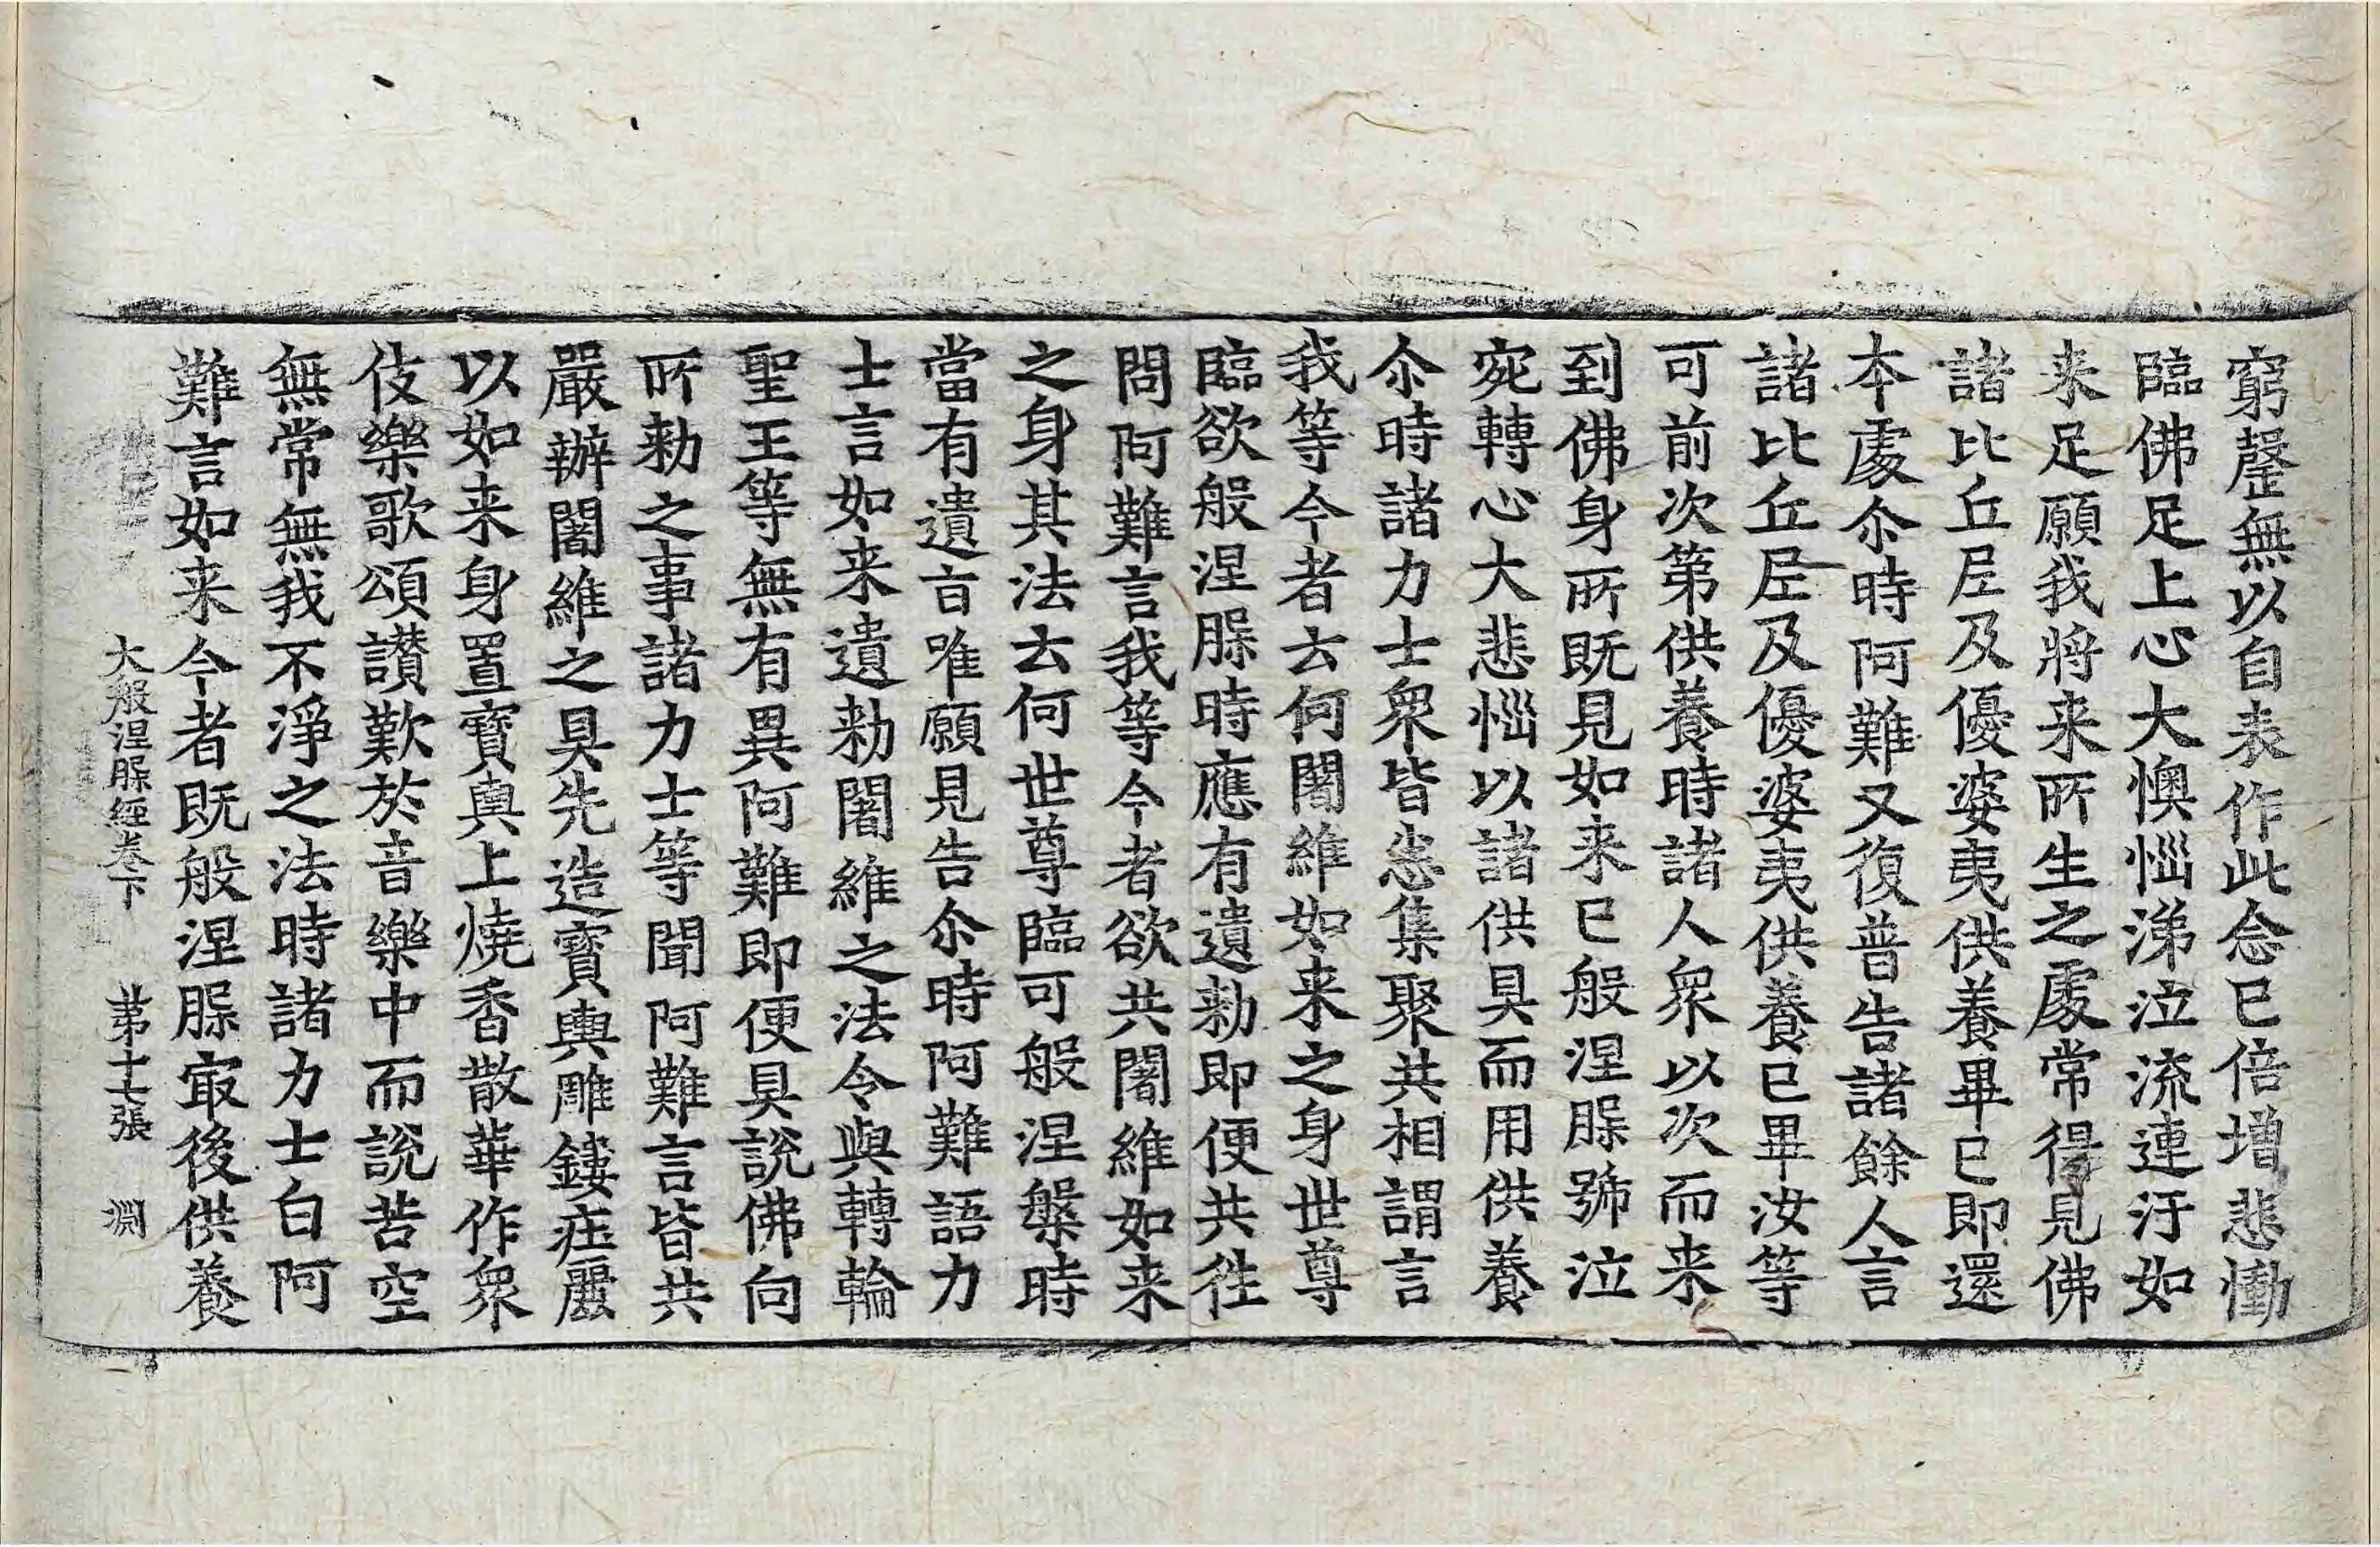 窮罄無以自表作此念已倍增悲慟
臨佛足上心大懊惱涕泣流連汙如
来足願我將来所生之處常得見佛
諸比丘尼及優婆夷供養畢已即還
本處尒時阿難又復普告諸餘人言
諸比丘尼及優婆夷供養已畢汝等
可前次第供養時諸人衆以次而来
到佛身所既見如来已般涅腂號泣
宛轉心大悲惱以諸供具而用供養
尒時諸力士衆皆悉集聚共相謂言
我等今者云何闍維如来之身世尊
臨欲般涅腂時應有遺勑即便共徃
問阿難言我等今者欲共闍維如来
之身其法云何世尊臨可般涅槃時
當有遺言唯願見告尒時阿難語力
士言如来遺勑闍維之法令與轉輪
聖王等無有異阿難即便具說佛向
所勑之事諸力士等聞阿難言皆共
嚴辦闍維之具先造寶輿雕鏤庄麗
以如来身置寶輿上燒香散華作衆
伎樂歌頌讃歎於音樂中而說苦空
無常無我不淨之法時諸力士白阿
難言如来今者既般涅腂㝡後供養
大般涅腂經卷下 苐十七張 淵